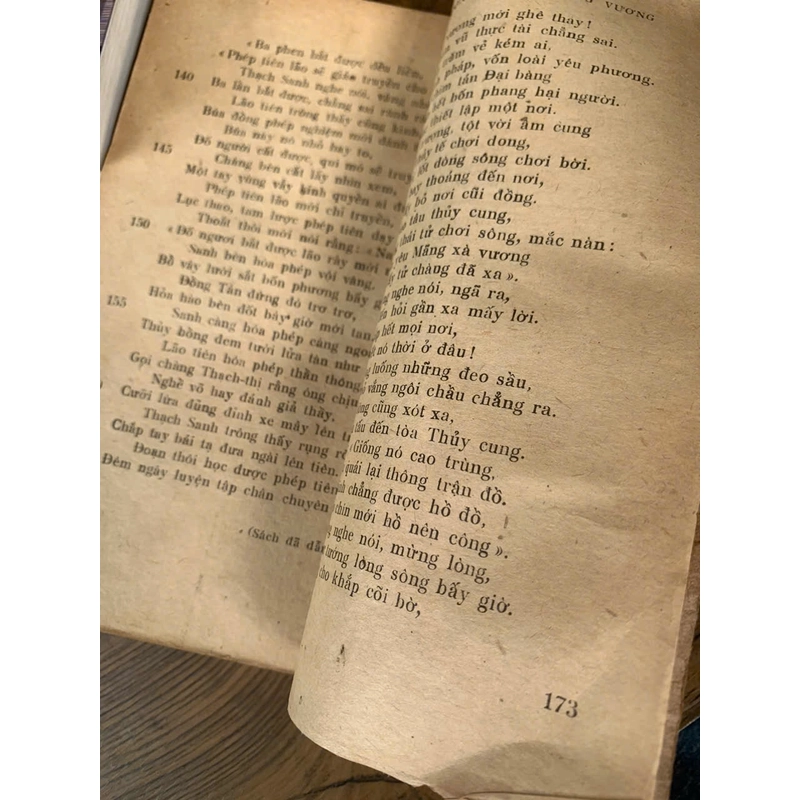 « Ba phen bắt được đều liền,
« Phép tiên lão sẽ giáo truyền cho
140 Thạch Sanh nghe nói, vâng
Ba lần bắt được, chẳng sai rành
Lão tiên trông thấy cũng kinh,
Búa đồng phép nghiệm mới đành
Búa này nó nhỏ hay to,
145 Đố ngươi cất được, quỉ mỏ sẽ
Chàng bèn cất lấy nhìn xem,
Một tay vùng vẫy kinh quyền ai
Phép tiên lão mới chỉ truyền,
Lục thao, tam lược phép tiên dạy
Thoắt thôi mới nói rằng: «
150 « Đố ngươi bắt được lão rày mới
Sanh bèn hóa phép vội vàng,
Bỗ vây lưới sắt bốn phương bấy
Đồng Tấn đứng đó trơ trơ,
Hỏa hào bèn đốt bây giờ mới tan
155 Sanh càng hóa phép càng
Thủy bồng đem tưới lửa tàn như
Lão tiên hóa phép thần thông,
Gọi chàng Thạch-thị rằng ông chịu
Nghề võ hay đánh giả thầy.
Cưỡi lừa đủng đỉnh xe mây lên
Thạch Sanh trông thấy rụng
Chắp tay bái tạ đưa ngài lên tiên.
Đoạn thôi học được phép tiên
Đêm ngày luyện tập chân chuyên
«(Sách đã dẫn
VƯƠNG
mới ghê thay!
vũ thực tài chẳng sai.
trăm vẻ kém ai,
pháp, vốn loài yêu phương.
tấn Đại bàng
bốn phang hại người.
thiết lập một nơi.
tột vời âm cung
tế chơi dong,
dòng sông chơi bời.
thoáng đến nơi,
bỏ nơi cũi đồng.
tâu thủy cung,
thái tử chơi sông, mắc nàn:
yêu Mãng xà vương
tử chàng đã xa ».
nghe nói, ngã ra,
hỏi gần xa mấy lời.
hết mọi nơi,
nó thời ở đâu!
luống những đeo sầu,
vắng ngôi chầu chẳng ra.
cũng xót xa,
tấu đến tòa Thủy cung.
Giống nó cao trùng,
quái lại thông trận đồ.
chẳng được hồ đồ,
chìn mới hồ nên công ».
nghe nói, mừng lòng,
tướng lòng sông bấy giờ.
cho khắp cõi bờ,
173